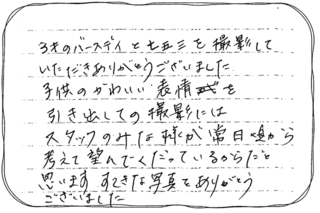 3才のバースデイと七五三を撮影して
いただきありがとうございました
子供のかわいい表情を
引き出しての撮影には
スタッフのみな様が常日頃から
考えて望んでくださっているからだと
思います すてきな写真をありがとう
ございました